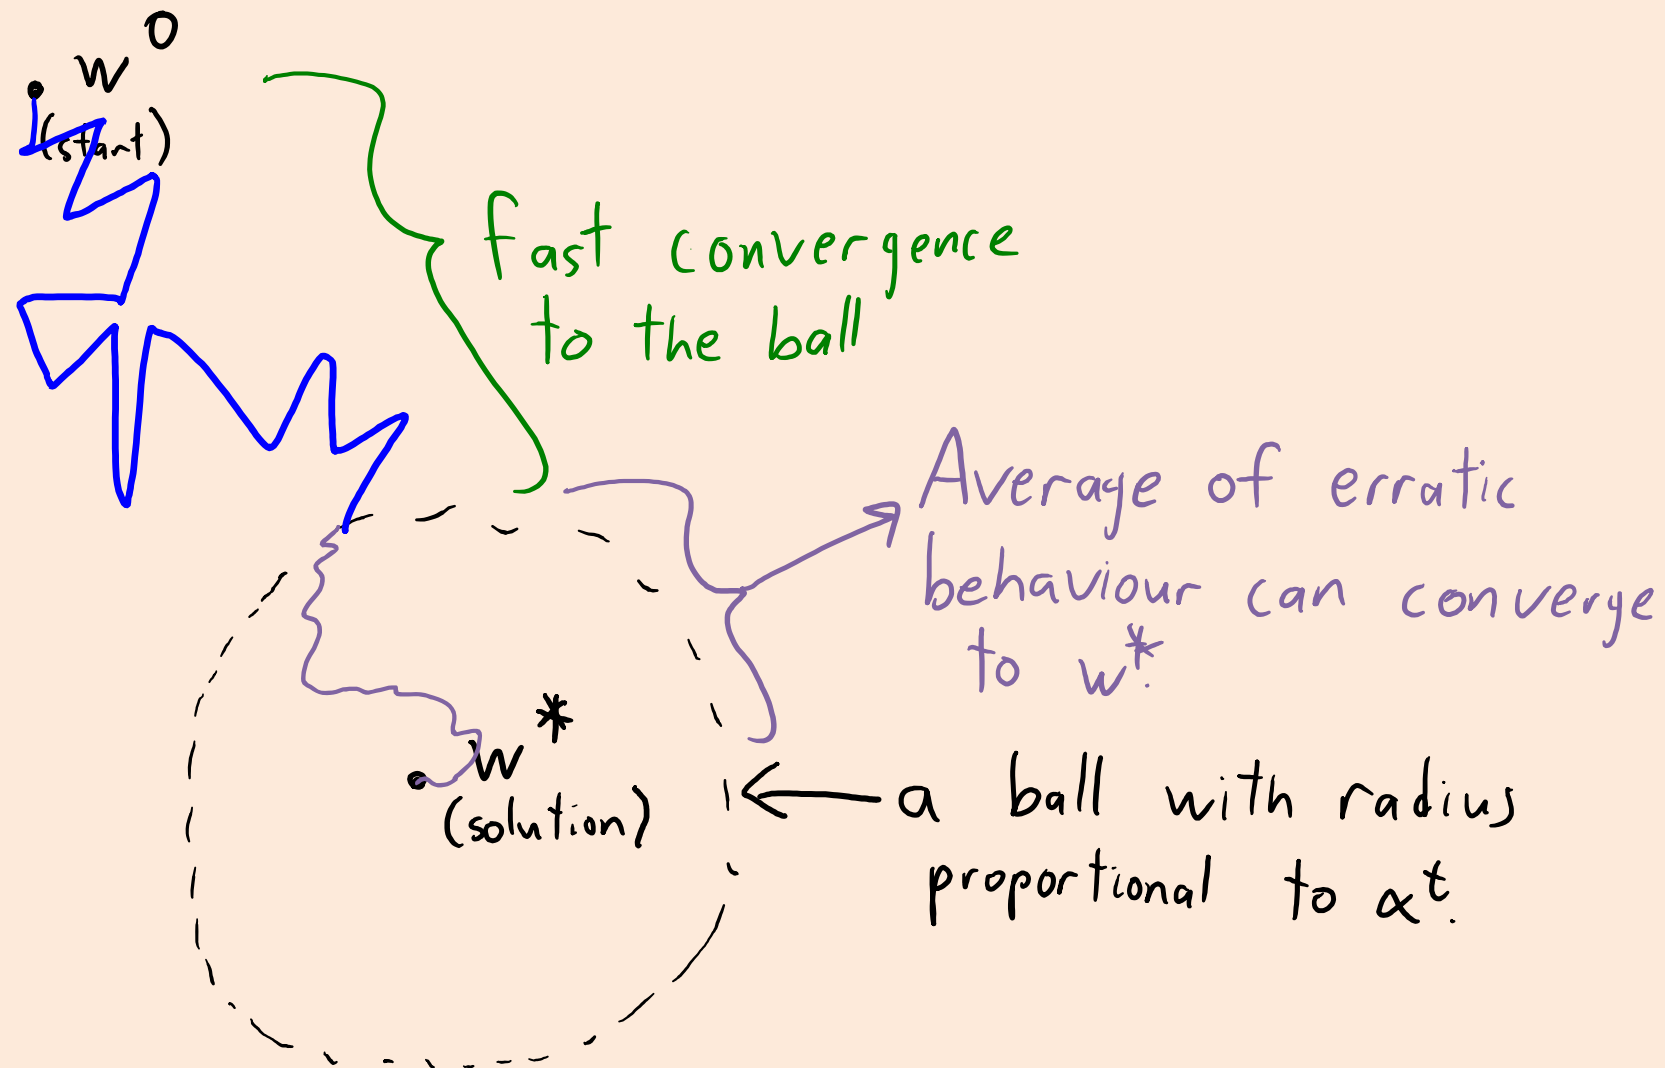 w⁰
(start)
fast convergence
to the ball
Average of erratic
behaviour can converge
to w*.
w*
(solution)
a ball with radius
proportional to αᵗ.